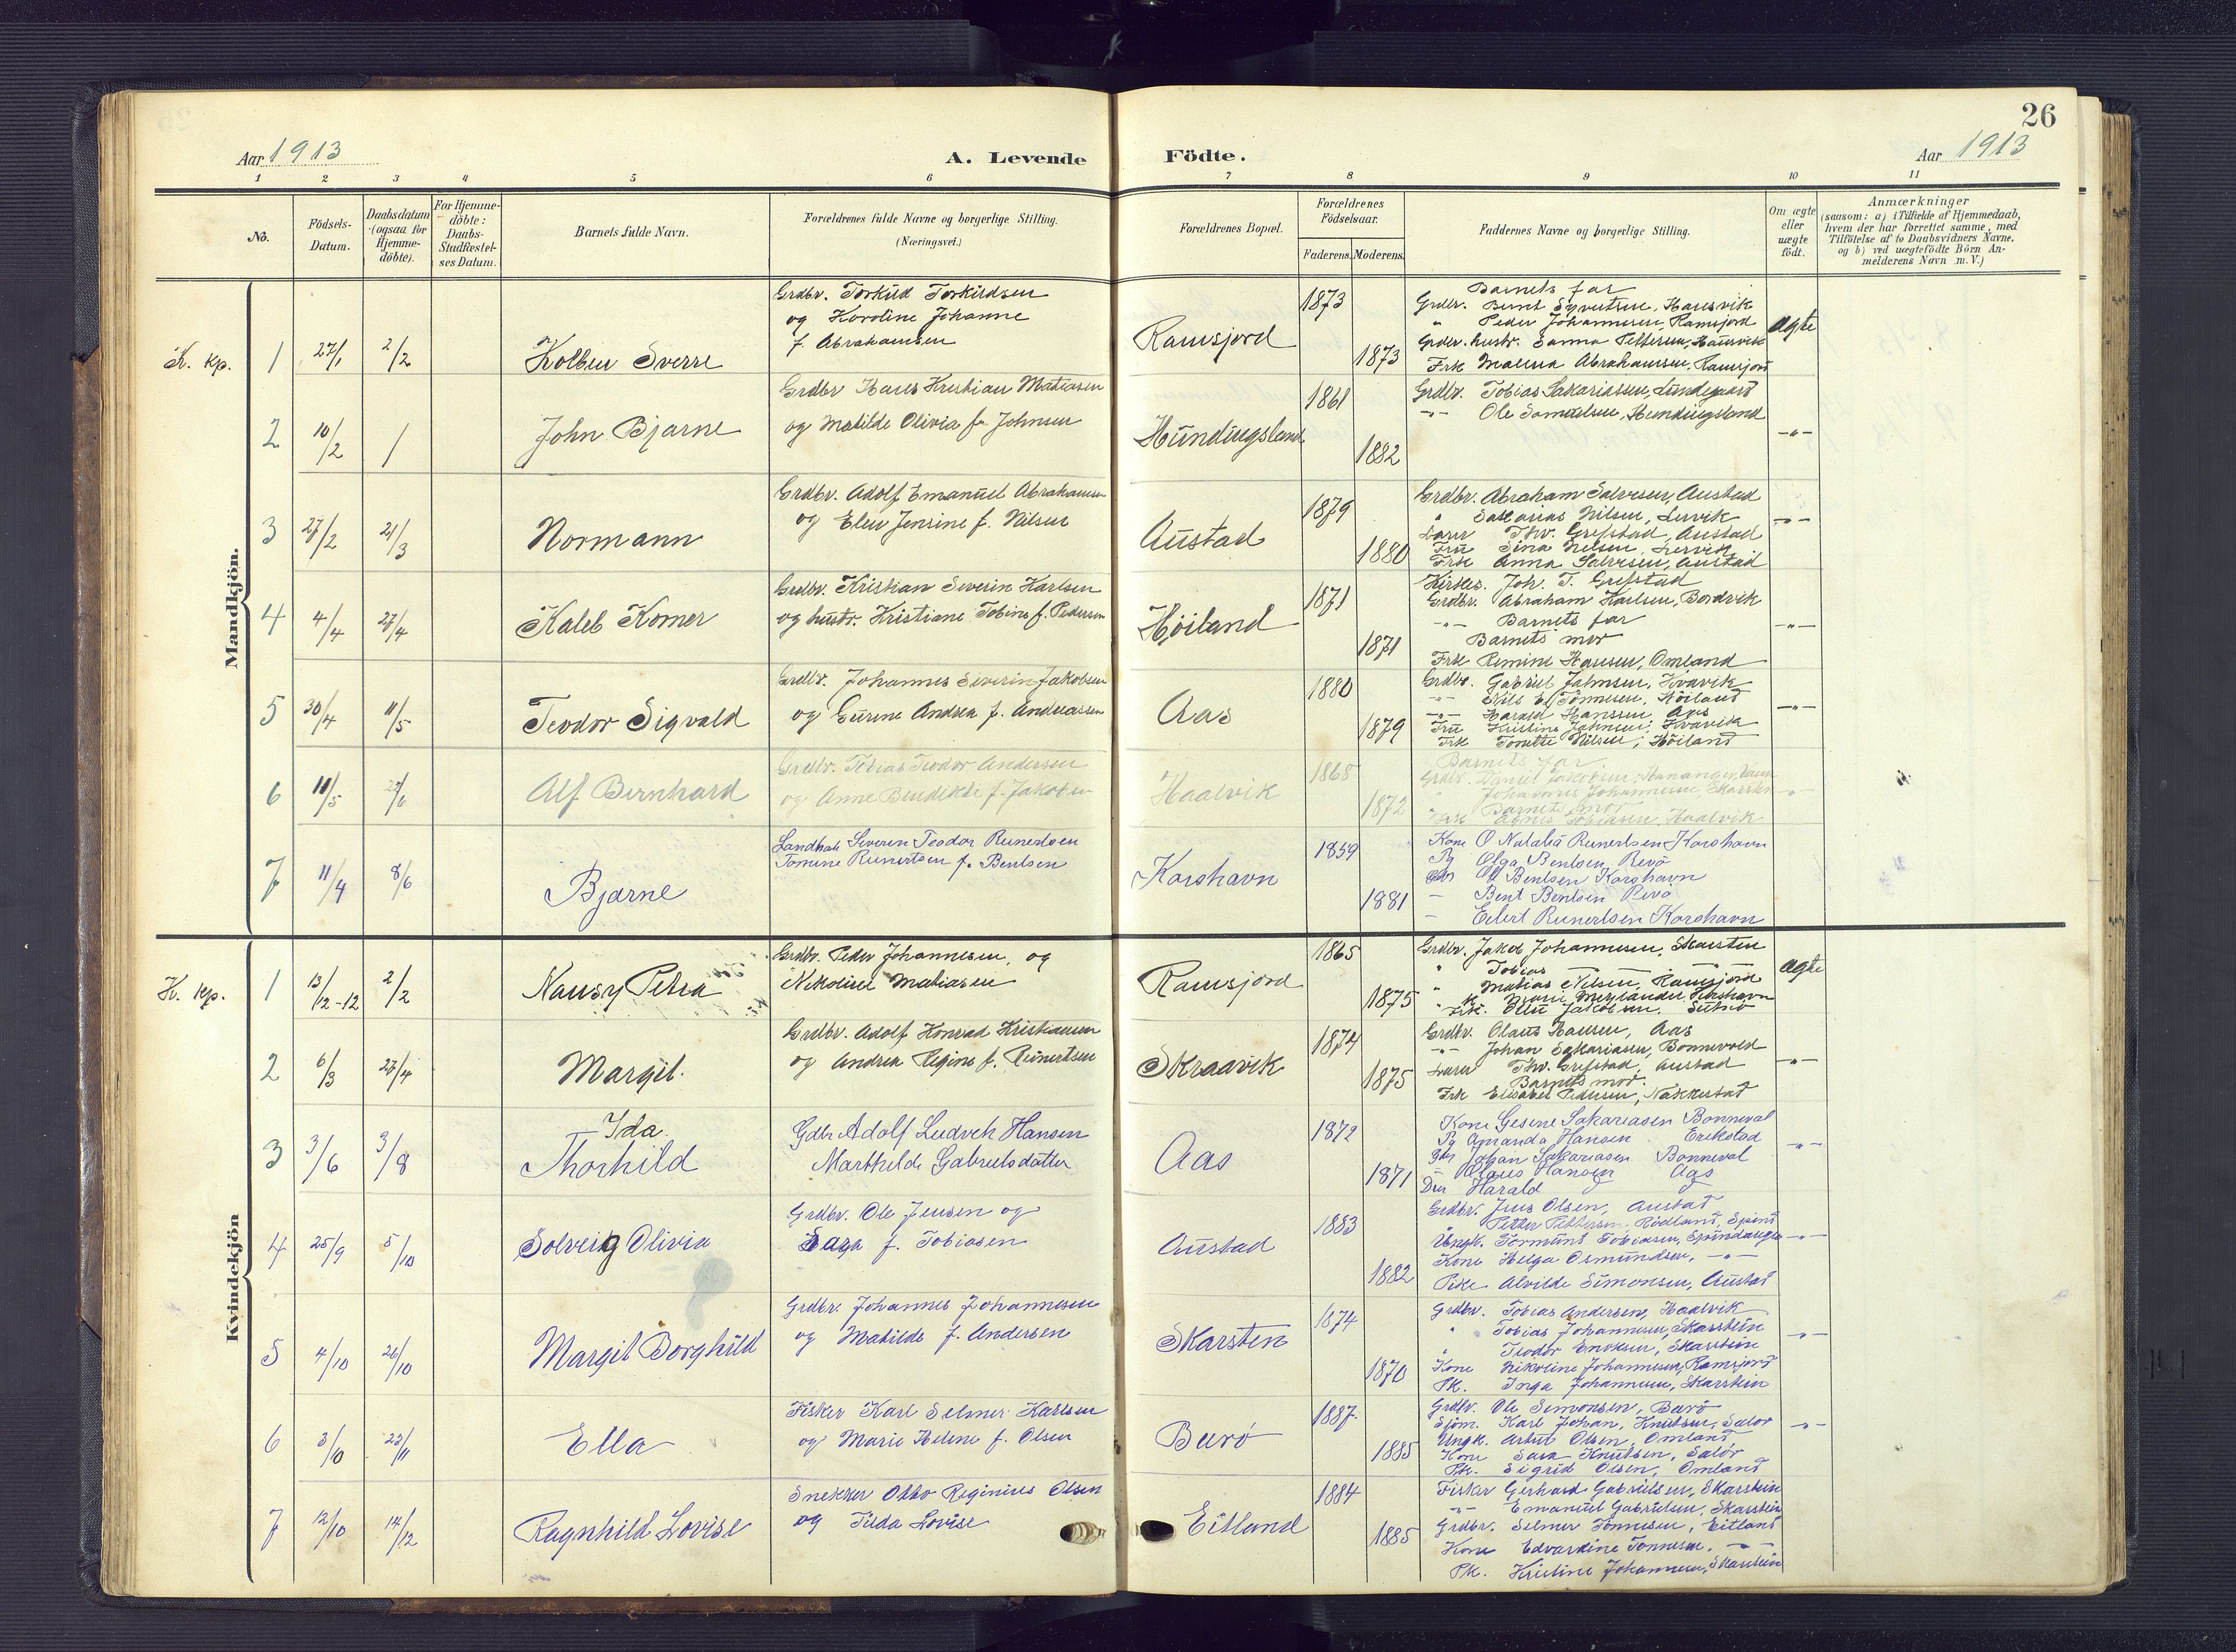 26
Aar 1913
A. Levende
Födte.
Aar 1913
1 2 3 4 5 6 7 8 9 10 11
No.
Födsels-Datum.
Daabsdatum (ogsaa for Hjemme-döbte).
For Hjemme-döbte: Daabs-Stadfæstel-ses Datum.
Barnets fulde Navn.
Forældrenes fulde Navne og borgerlige Stilling.
(Næringsvei.)
Forældrenes Bopæl.
Forældrenes Födselsaar.
Faderens. Moderens.
Faddernes Navne og borgerlige Stilling.
Om ægte eller uægte födt.
Anmærkninger
(saasom: a) i Tilfælde af Hjemmedaab,
hvem der har forrettet samme, med
Tilföielse af to Daabsvidners Navne,
og b) ved uægtefödte Börn An-
melderens Navn m. V.)
Mandkjön.
K. kp. 1 27/1 2/2
Kolben Sverre
Grdbr. Torkild Torkildsen
og Karoline Johanne
f. Abrahamsen
Ramsjord
1873
1873
Barnets far
Grdbr. Bernt Syvertsen, Hausvik
" Peder Johannesen, Ramsjord
Grdbr. hustr. Sanna Pettersen, Hausvik
Frk Malena Abrahamsen, Ramsjord
Ægte
2 10/2 /
John Bjarne
Grdbr Hans Kristian Matiasen
og Matilde Olivia f. Johnsen
Hundingsland
1861
1882
Grdbr. Tobias Sakariassen, Lundegaard
-"- Ole Samuelsen, Hundingsland
-"-
3 27/2 21/3
Normann
Grdbr. Adolf Emanuel Abrahamsen
og Elen Jensine f. Nilsen
Austad
1879
1880
Grdbr. Abraham Salvesen, Austad
" Sakarias Nilsen, Lervik
Lærer Thv. Grefstad, Austad
Fru Sina Nelsen, Lervik
Frk Anna Salvesen, Austad
-"-
4 4/4 27/4
Kaleb Komer
Grdbr. Kristian Severin Karlsen
og hustr. Kristiane Tobine f. Pedersen
Höiland
1871
1871
Kirkes. Joh. T. Grefstad
Grdbr. Abraham Karlsen, Bordvik
-"- Barnets far
Barnets mor
Frk Remine Hansen, Omland
-"-
5 30/4 11/5
Teodor Sigvald
Grdbr. Johannes Severin Jakobsen
og Gurine Andrea f. Andreassen
Aas
1880
1879
Grdbr. Gabriel Jahnsen, Kvavik
-"- Nils E. Tönnesen, Höiland
-"- Harald Hanssen, Aas
Fru Kristine Jahnsen, Kvavik
Frk Tonette Nilsen, Höiland
-"-
6 11/5 /6
Alf Bernhard
Grdbr. Tobias Teodor Andersen
og Anne Bendikte f. Jakobsen
Haalvik
1868
1872
Barnets far
Grdbr. Daniel Jakobsen,
" Johannes Johannesen, Skarsten
Barnets mor
Frk Agnes Tobiasen, Haalvik
-"-
7 11/4 8/6
Bjarne
Landhdl Severin Teodor Reinertsen
Tomine Reinertsen f. Bentsen
Korshavn
1859
1881
Kone O Natalia Reinertsen Korshavn
Pg Olga Bentsen Revö
O Bentsen Korshavn
- Bent Bentsen Revö
- Eilert Reinertsen Korshavn
Kvindekjön
K. kp. 1 13/12-12 2/2
Nansy Petra
Grdbr. Peder Johannesen, og
Nikoline Matiasen
Ramsjord
1865
1875
Grdbr. Jakob Johannesen, Skarsten
" Tobias -"- -"-
" Matias Nilsen, Ramsjord
" k. Marie Meylander, Korshavn
Frk. Jakobsen,
Ægte
2 6/3 27/4
Margit.
Grdbr. Adolf Konrad Kristiansen
og Andrea Regine f. Reinertsen
Skraavik
1874
1875
Grdbr. Olaus Hansen, Aas
-"- Johan Sakariasen, Bonnevold
Lærer Thv. Grefstad, Austad
Barnets mor.
Frk Elisabet Pedersen, Nakkestad
-"-
3 3/6 3/8
Ida
Thorhild
Gdbr Adolf Ludvek Hansen
Marthilde Gabrielsdatter
Aas
1872
1871
Kone Gesine Sakariasen Bonneval
Pg Amanda Hansen Erikstad
Gbr Johan Sakariasen Bonneval
- Olaus Hansen Aas
Harald
-"-
4 25/9 5/10
Solveig Olivia
Grdbr. Ole Jensen og
Sara f. Tobiasen
Austad
1883
1882
Grdbr. Jens Olsen, Austad
" Petter Pettersen, Rödland, Spind
Ungk. Tormund Tobiasen,
Kone Helga Osmundsen, -"-
Pike Alvilde Simonsen, Austad
-"-
5 4/10 26/10
Margit Borghild
Grdbr. Johannes Johannesen
og Matilde f. Andersen
Skarsten
1874
1870
Grdbr. Tobias Andersen, Haalvik
" Tobias Johannesen, Skarstein
" Teodor Enoksen, Skarstein
Kone Nikoline Johannesen, Ramsjord
Pk. Inga Johannesen, Skarstein
-"-
6 3/10 23/11
Ella
Fisker Karl Selmer Karlsen
og Marie Helene f. Olsen
Burö
1887
1885
Grdbr. Ole Simonsen, Burö
Sjöm. Karl Johan Knutsen, Salör
Ungk. Artur Olsen, Omland
Kone Sara Knutsen, Salör
Pk. Sigrid Olsen, Omland
-"-
7 12/10 14/12
Ragnhild Lovise
Snekker Otto Reginius Olsen
og Tilda Lovise
Eitland
1884
1885
Fisker Gerhard Gabrielsen, Skarstein
-"- Emanuel Gabrielsen, Skarstein
Grdbr. Selmer Tönnesen, Eitland
Kone Edvardine Tonnesen, -"-
Pk. Kristine Johannesen, Skarstein